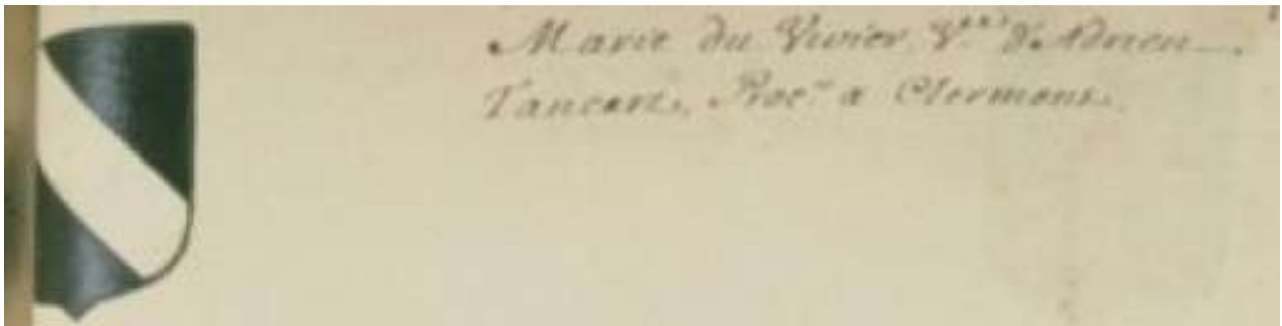 Marie du Vivier V.ve d'Adrien
Tancart, Proc.r a Clermont.